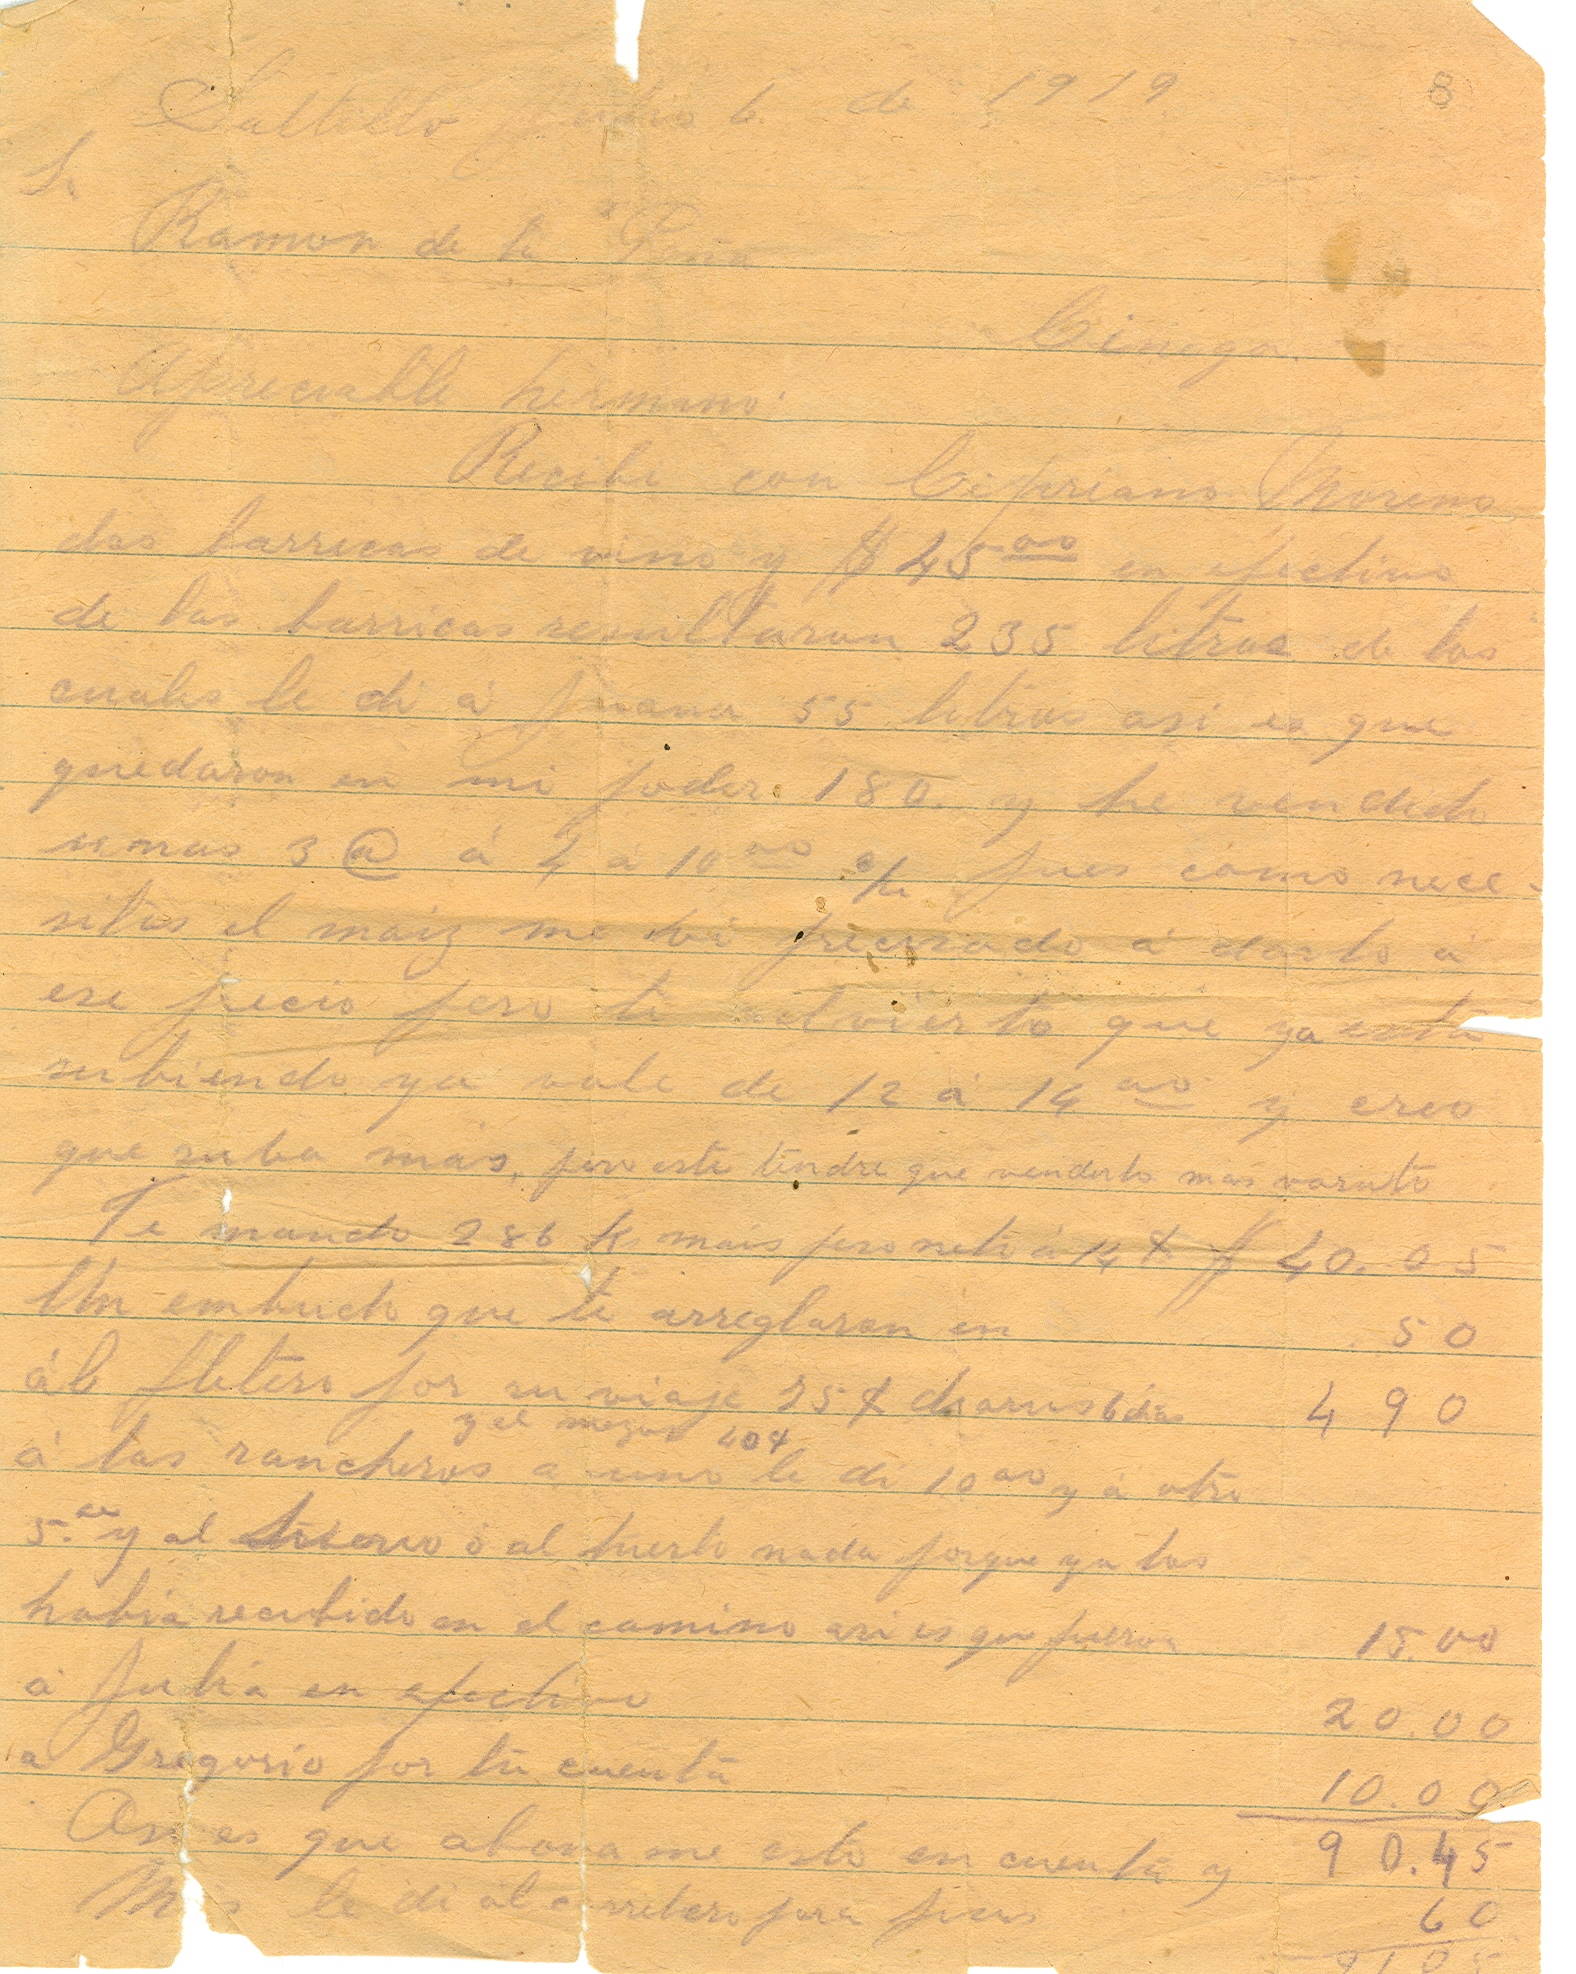 8
Saltillo Junio 6 de 1919
Sr
Ramon de la Peña
Cinega.
Apreciable hermano:
Recibi con Cipriano Moreno
dos barricas de vino y $45 oo en efectivo
de las barricas resultaron 235 litros de los
cuales le di á Juana 55 litros asi es que
quedaron en mi poder 180. y he vendido
unas 3 @ á á 10 oo pues como nece-
sitas el maiz me vi precisado á darlo á
ese precio pero te advierto que ya está
subiendo ya vale de 12 á 14 oo y creo
que suba más, pero este tendre que venderlo mas varato
Te mando 286 Ks mais peso neto á 14 ¢ $ 40.05
Un embudo que te arreglaron en 50
ál fletero por su viaje 25 ¢ diarios 6 dias 4 90
y el mozo 40¢
á los rancheros a uno le di 10 oo y á otro
5. oo y al ó al tuerto nada porque ya los
habia recibido en el camino asi es que fueron 15.00
á Julia en efectivo 20.00
a Gregorio por tu cuenta 10.00
Asi es que abona me esto en cuenta y 90.45
Más le di ál carretero para 60
91 05